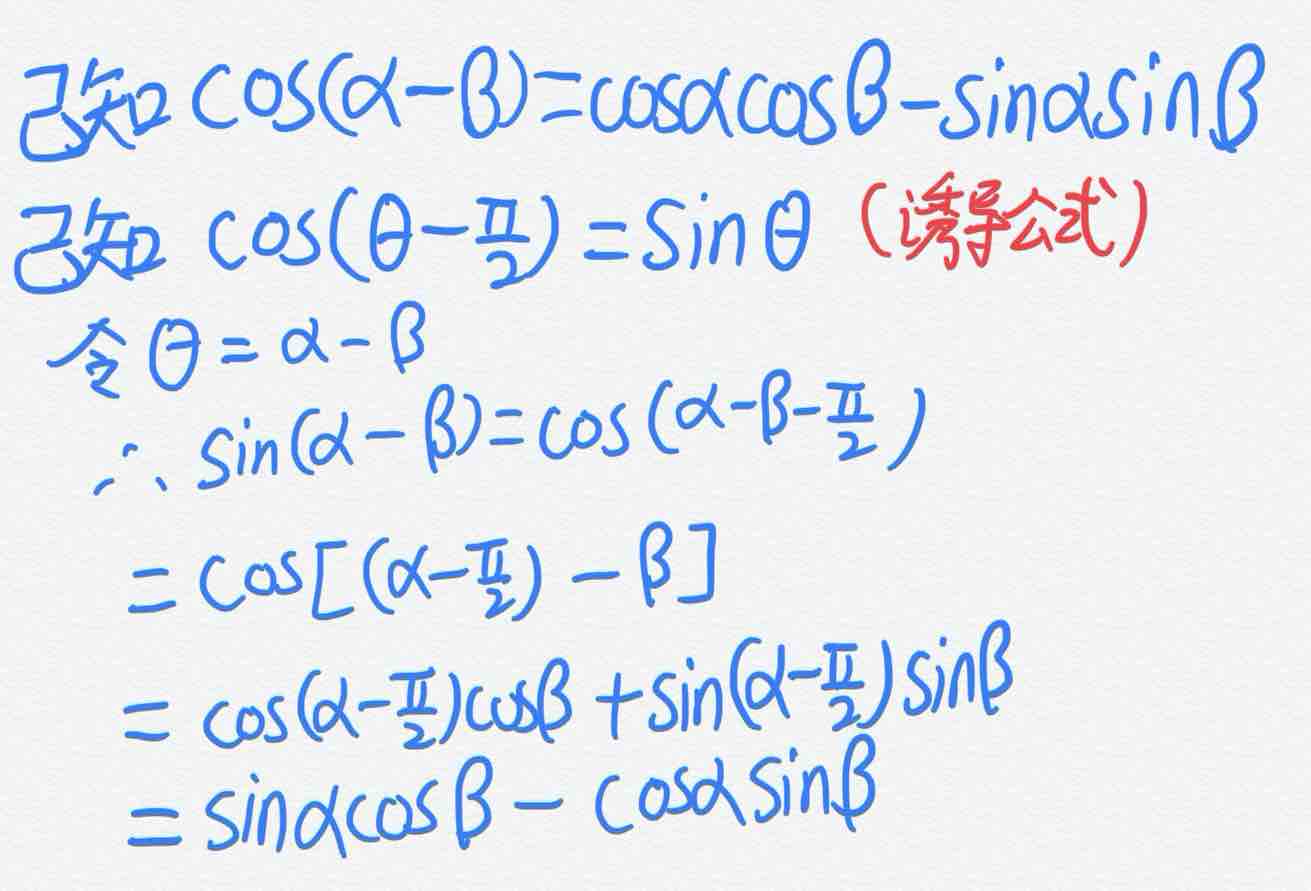 已知 cos(α-β)=cosαcosβ-sinαsinβ
已知 cos(θ-π/2)=sinθ (诱导公式)
令 θ=α-β
∴ sin(α-β)=cos(α-β-π/2)
=cos[(α-π/2)-β]
=cos(α-π/2)cosβ+sin(α-π/2)sinβ
=sinαcosβ-cosαsinβ